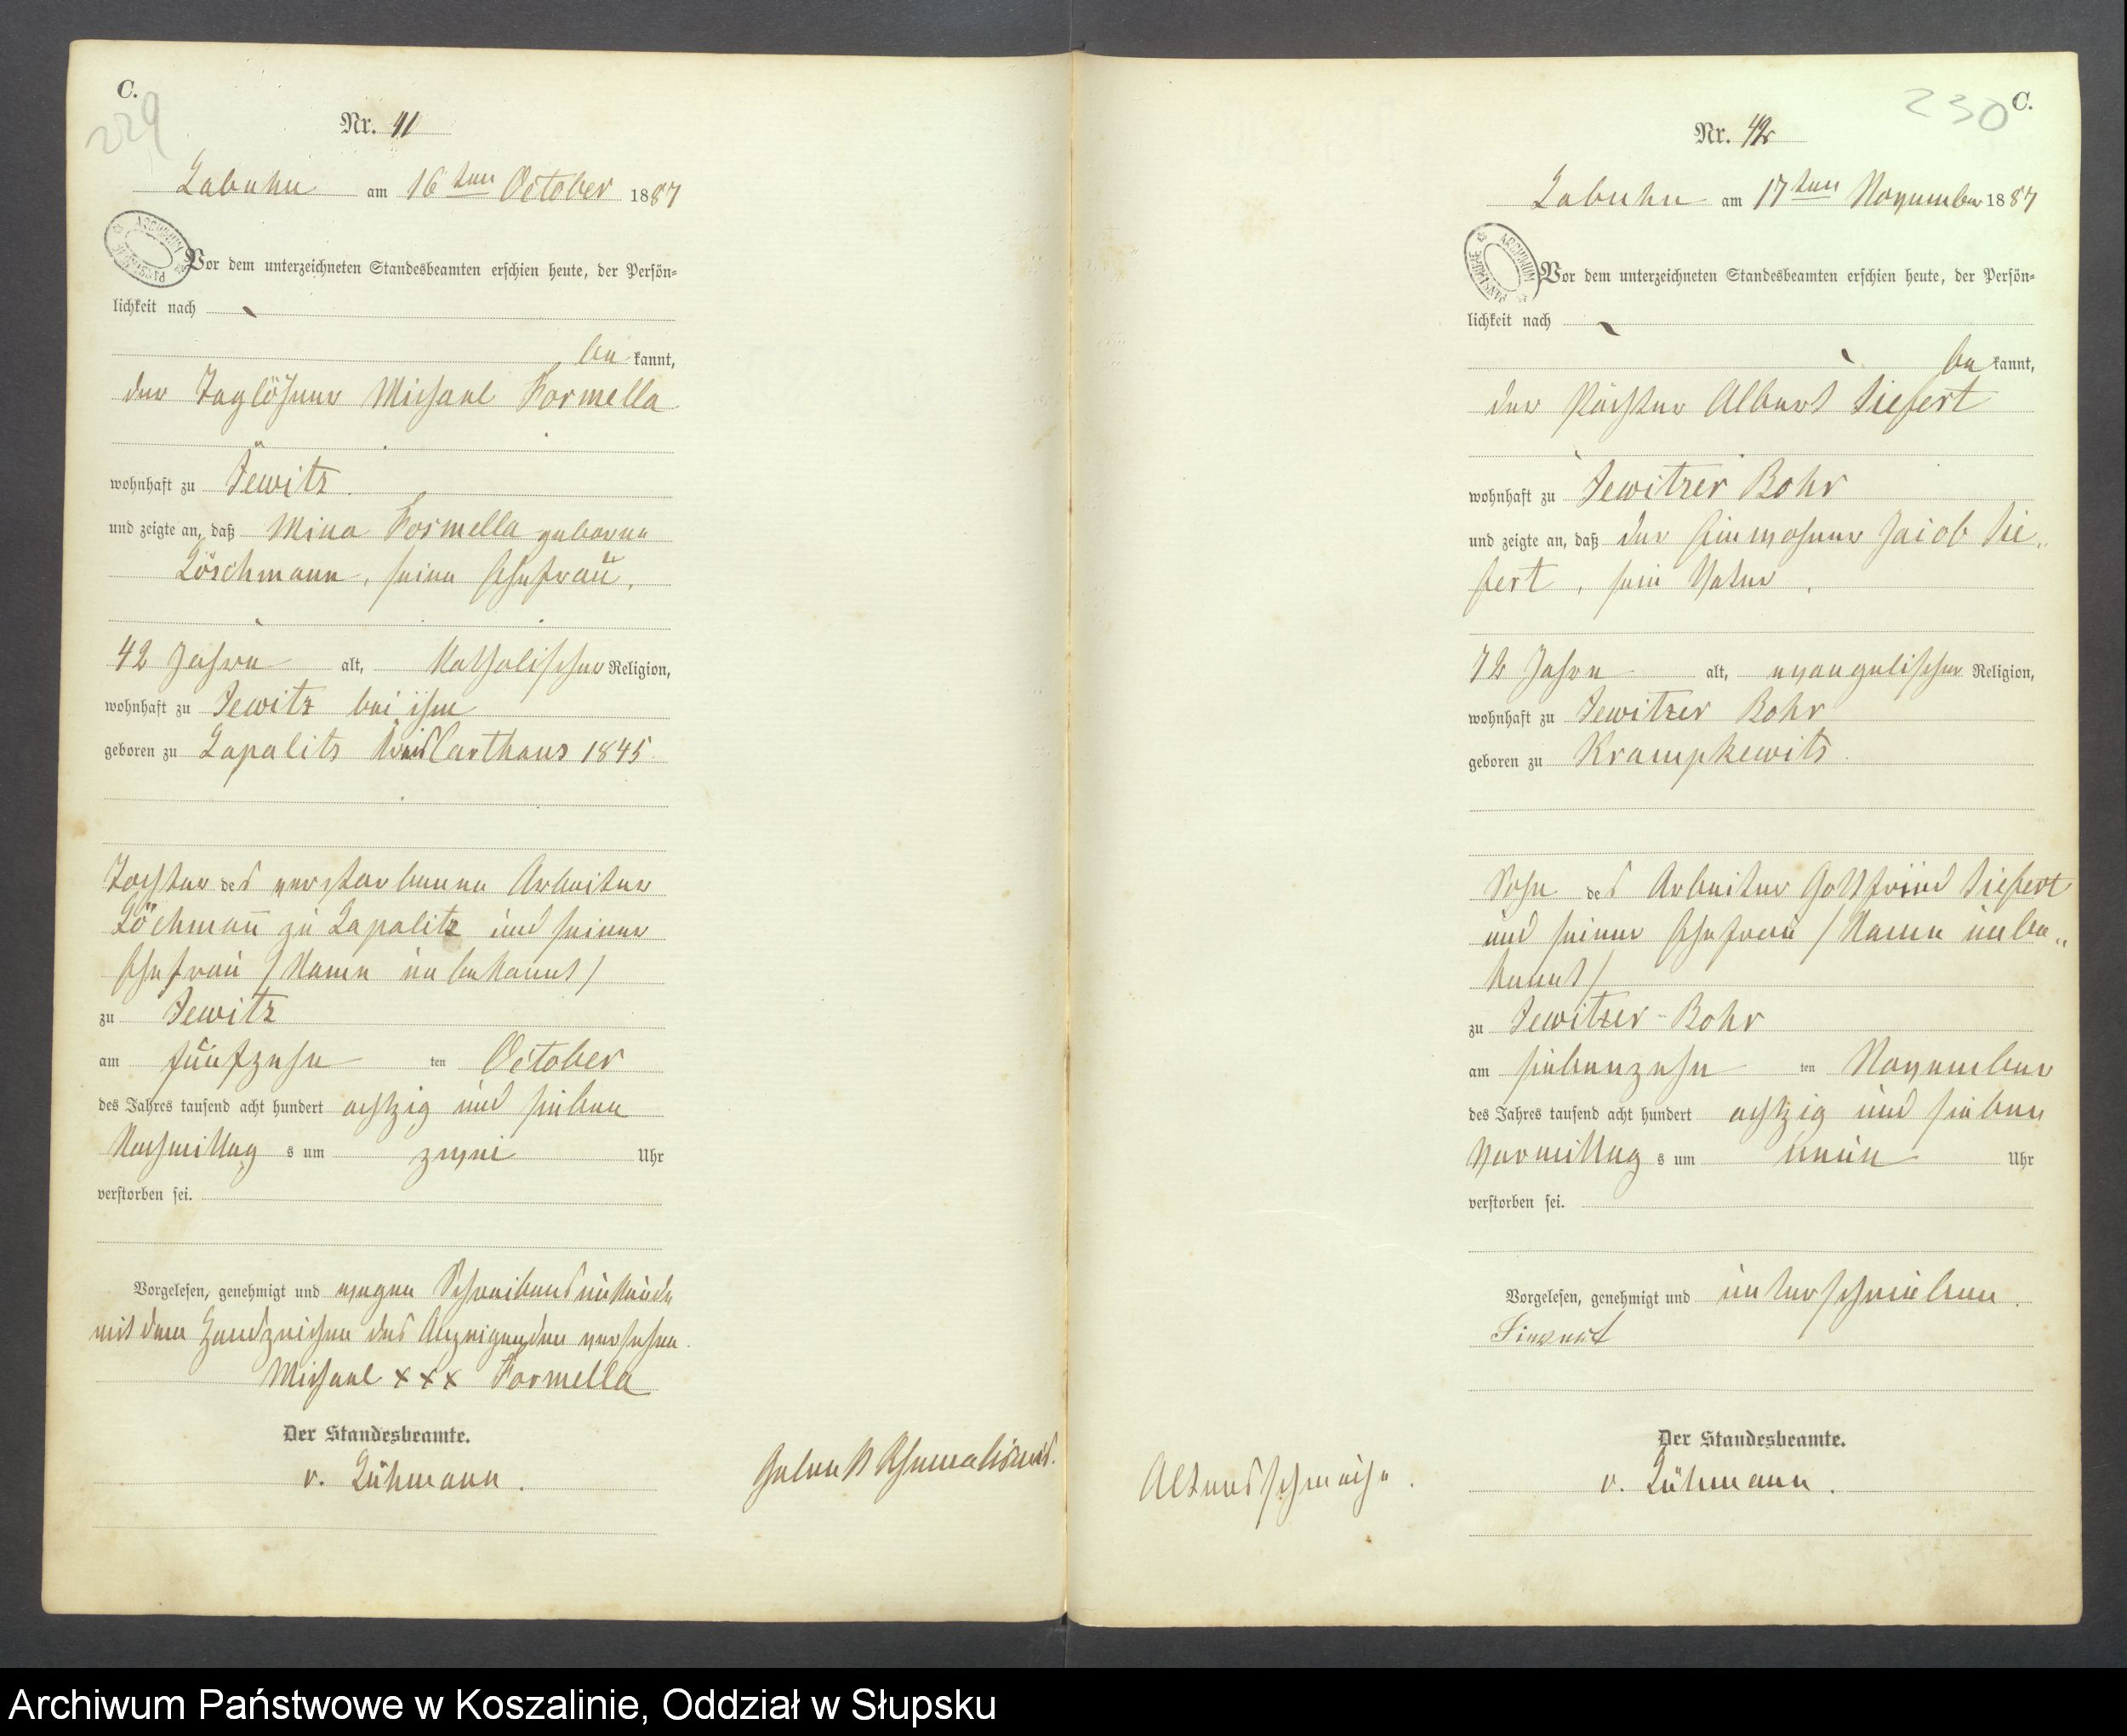 C.
229
Nr. 41
Labuhn am 16ten October 1887
ARCHIWUM PAŃSTWOWE
Vor dem unterzeichneten Standesbeamten erschien heute, der Persön-
lichkeit nach
be kannt,
der Taglöhner Michael Formella
wohnhaft zu Jewitz.
und zeigte an, daß Mina Formella geborene
Löschmann, seine Ehefrau,
42 Jahre alt, Katholischer Religion,
wohnhaft zu Jewitz bei ihm
geboren zu Lapalitz Kreis Carthaus 1845.
Tochter des verstorbenen Arbeiter
Löchmann zu Lapalitz und seiner
Ehefrau /Name unbekannt/
zu Jewitz
am fünfzehn ten October
des Jahres tausend acht hundert achtzig und sieben
Nachmittag s um zwei Uhr
verstorben sei.
Vorgelesen, genehmigt und wegen Schreibensunkunde
mit dem Handzeichen des Anzeigenden versehen.
Michael xxx Formella
Der Standesbeamte.
v. Lühmann.
C.
230
Nr. 42
Labuhn am 17ten November 1887
ARCHIWUM PAŃSTWOWE
Vor dem unterzeichneten Standesbeamten erschien heute, der Persön-
lichkeit nach
be kannt,
der Pächter Albert Siefert
wohnhaft zu Jewitzer Bohr
und zeigte an, daß der Einwohner Jacob Sie-
fert, sein Vater,
72 Jahre alt, evangelischer Religion,
wohnhaft zu Jewitzer Bohr
geboren zu Krampkewitz.
Sohn des Arbeiter Gottfried Siefert
und seiner Ehefrau /Name unbe-
kannt/
zu Jewitzer-Bohr
am siebenzehn ten November
des Jahres tausend acht hundert achtzig und sieben
Vormittag s um neun Uhr
verstorben sei.
Vorgelesen, genehmigt und unterschrieben.
Der Standesbeamte.
v. Lühmann.
Altersschwäche.
Archiwum Państwowe w Koszalinie, Oddział w Słupsku